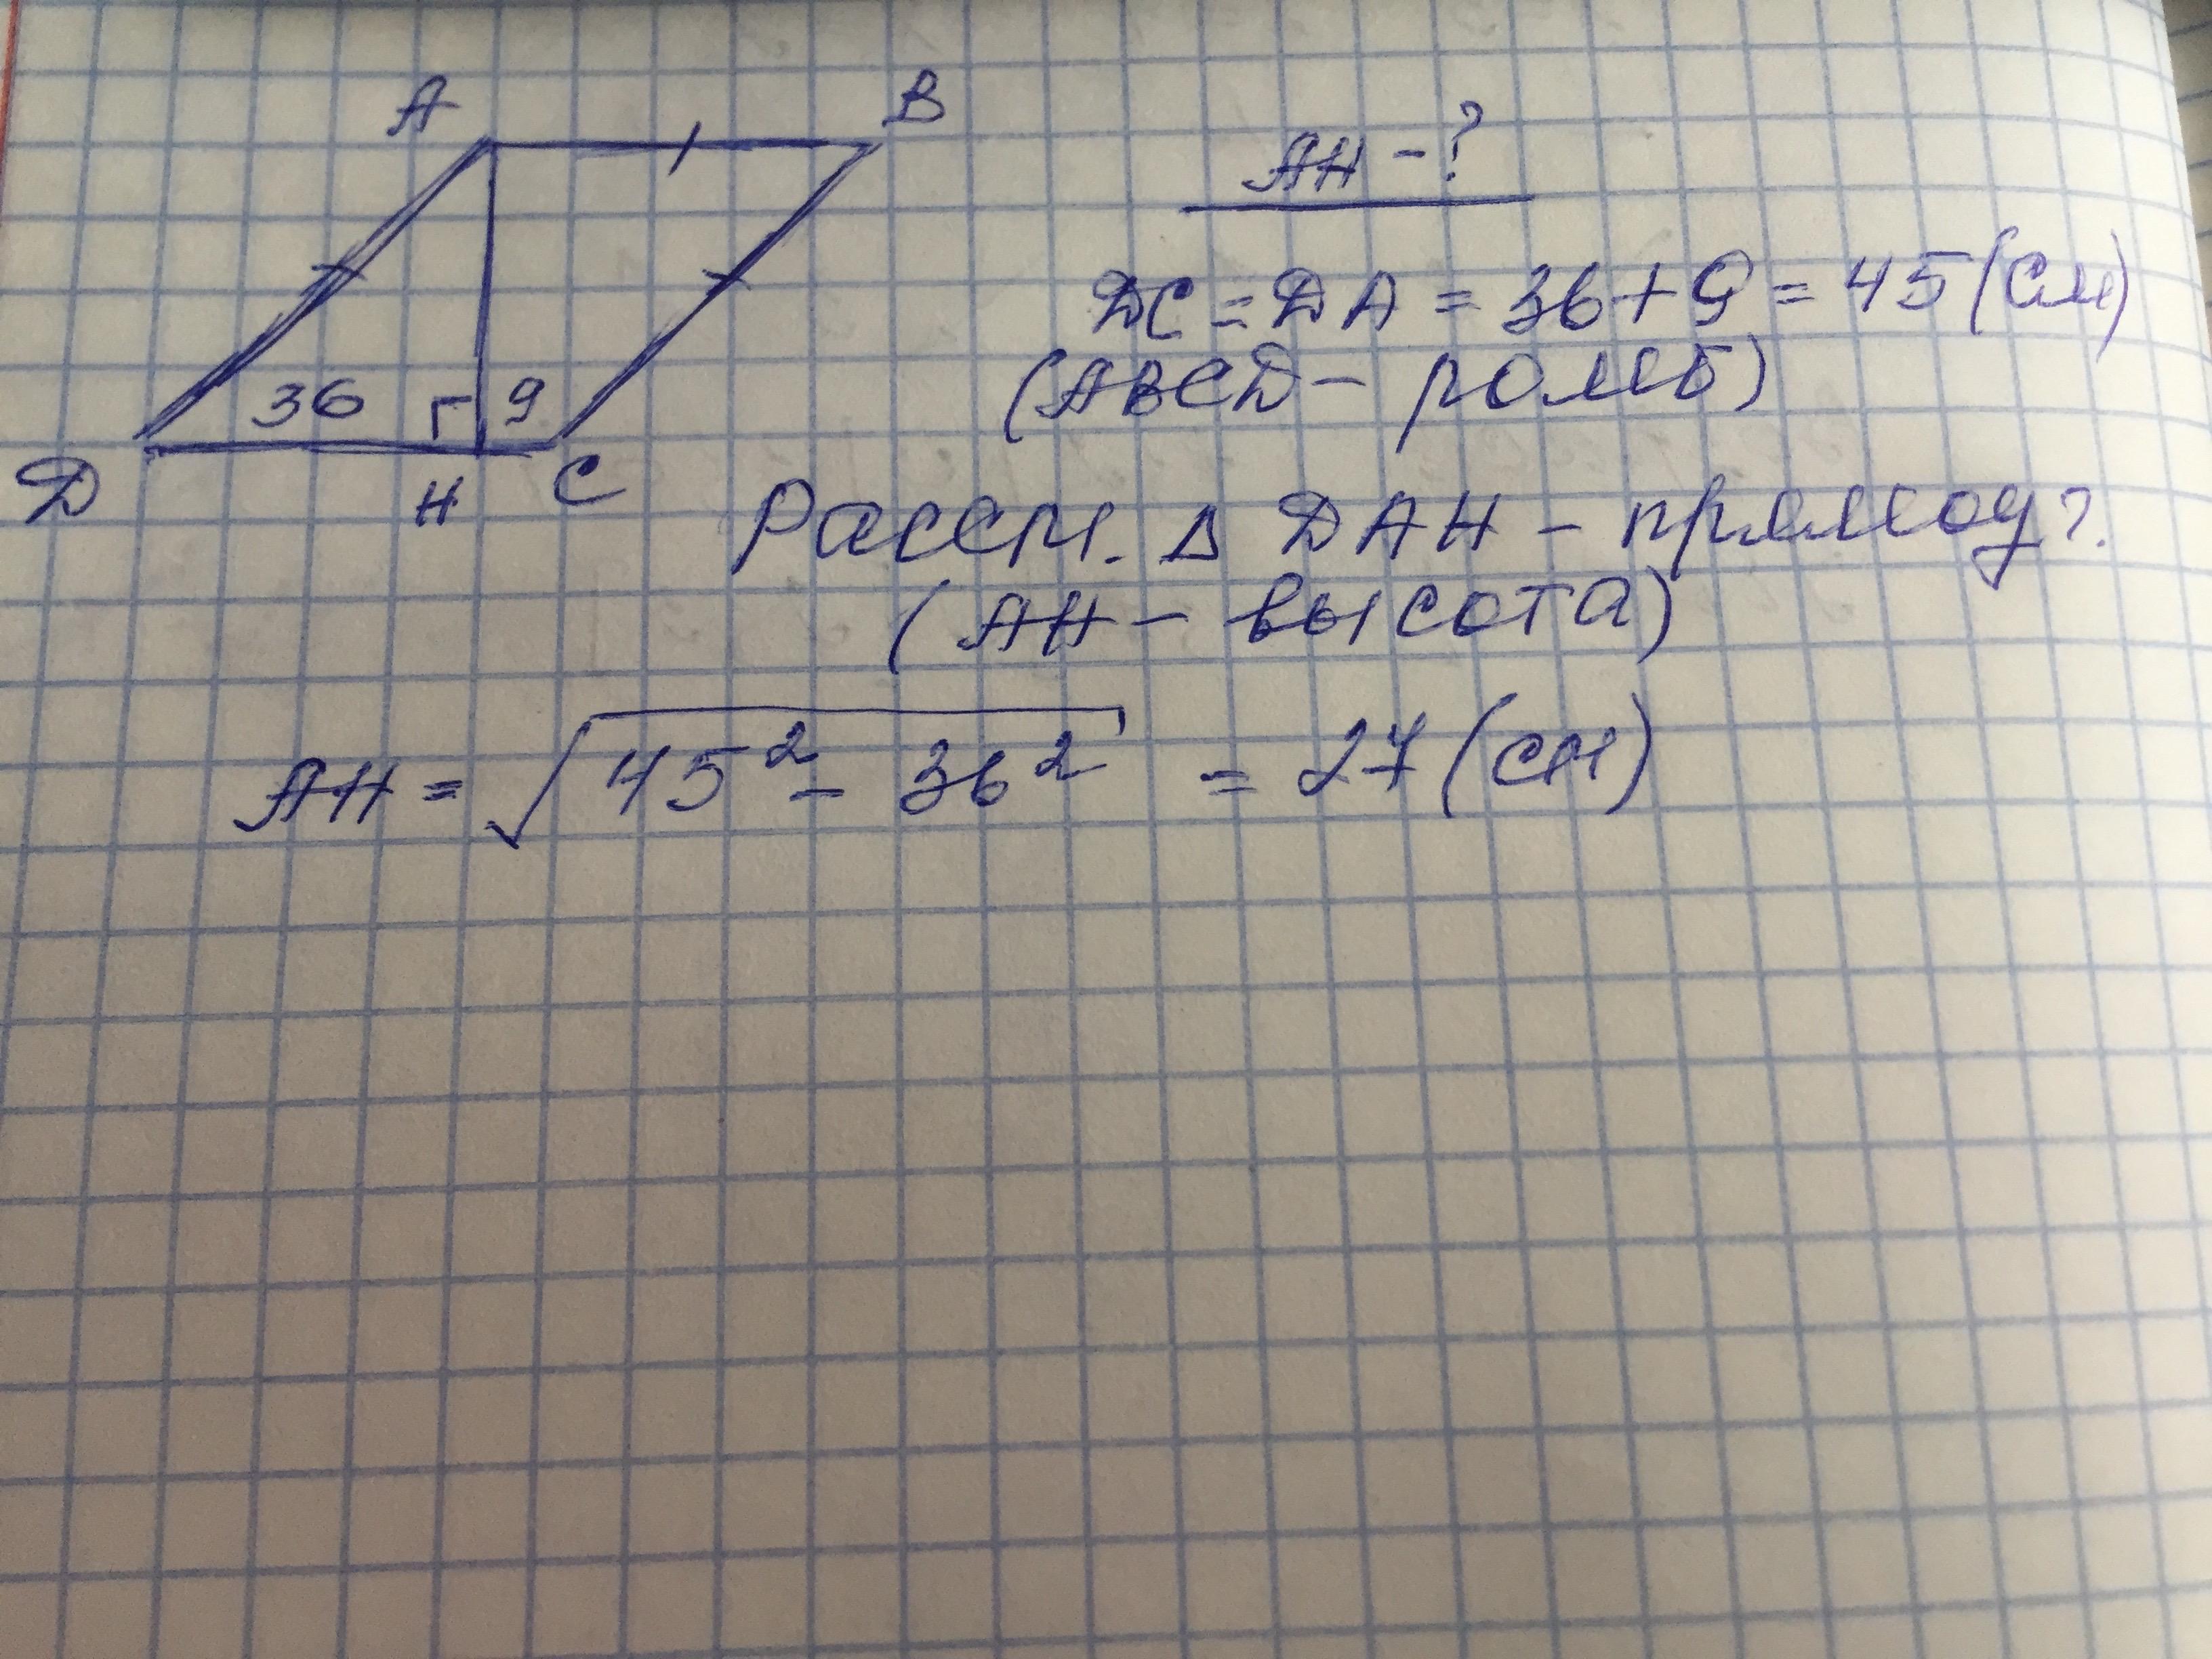 A B
AH - ?
36 9
D H C
DC = DA = 36 + 9 = 45 (см)
(ABCD - ромб)
Рассм. Δ DAH - прямоуг.
(AH - высота)
AH = √45² - 36² = 27 (см)